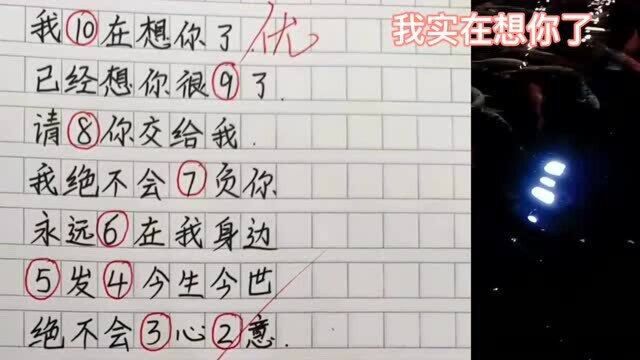 我⑩在想你了 优
已经想你很⑨了.
请⑧你交给我.
我绝不会⑦负你
永远⑥在我身边
⑤发④今生今世
绝不会③心②意.
我实在想你了